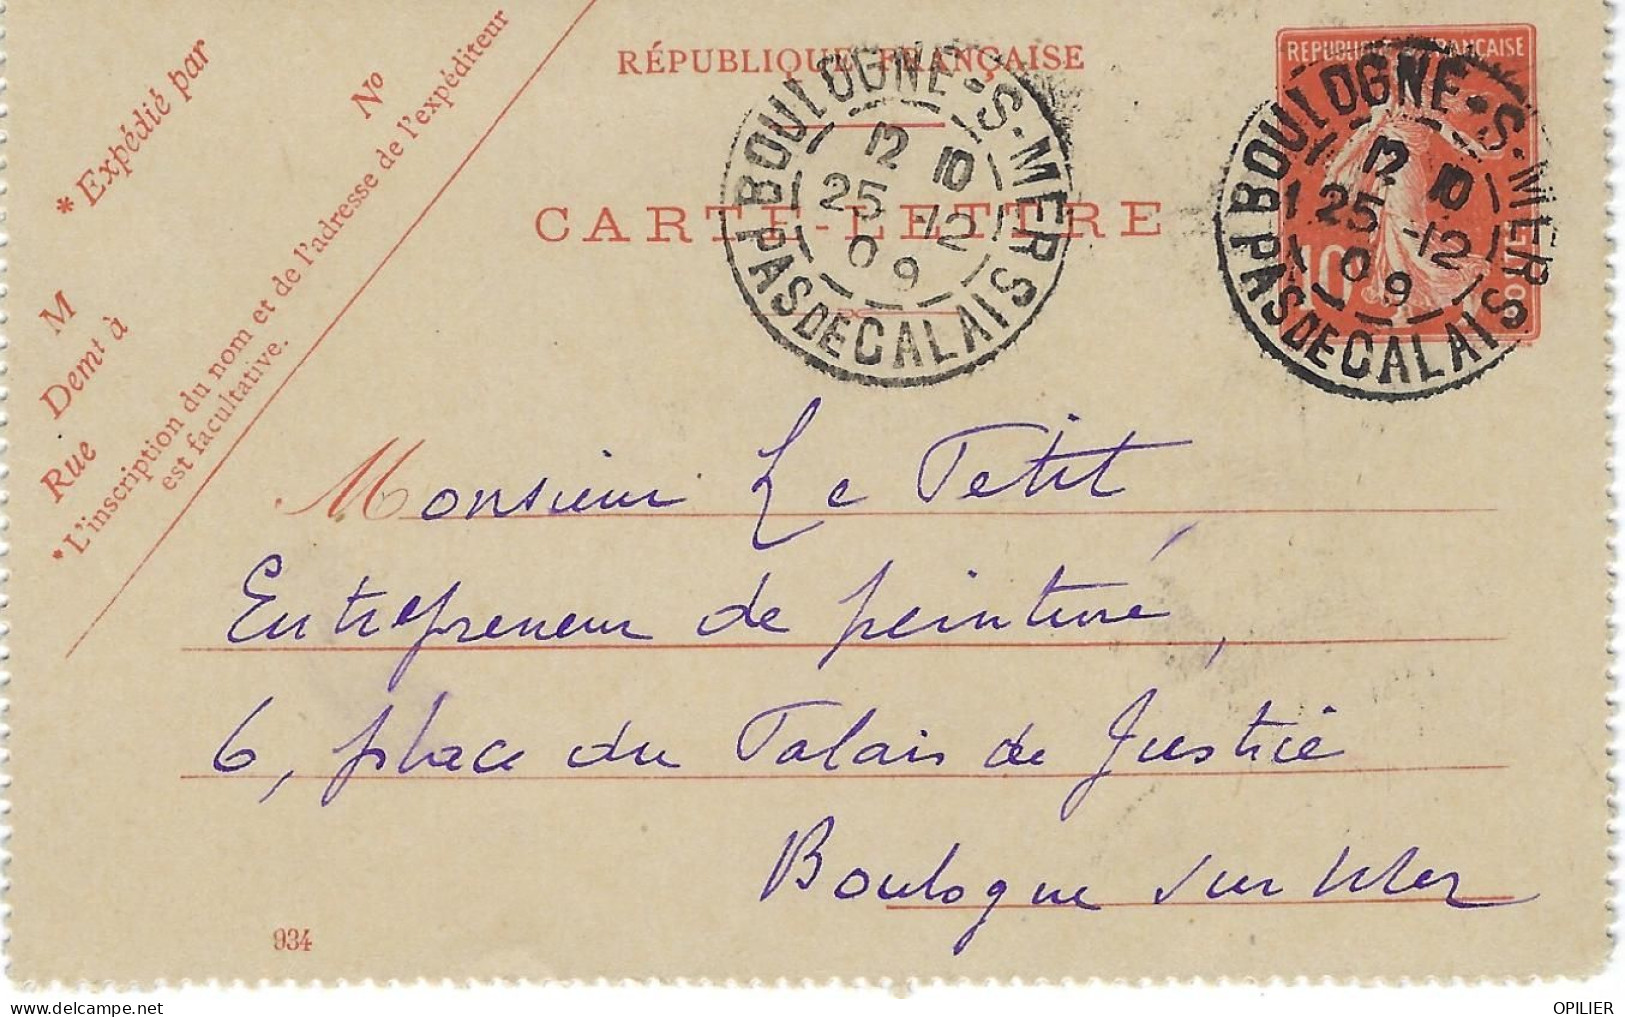 * Expédié par
No
M
Demt à
Rue
*L'inscription du nom et de l'adresse de l'expéditeur
est facultative.
RÉPUBLIQUE FRANÇAISE
CARTE-LETTRE
BOULOGNE-S-MER
12 10
25 -12
09
PAS DE CALAIS
REPUBLIQUE FRANÇAISE
10
POSTES
BOULOGNE-S-MER
12 10
25 -12
09
PAS DE CALAIS
Monsieur Le Petit
Entrepreneur de peinture,
6, place du Palais de Justice
Boulogne sur Mer
934
www.delcampe.net
OPILIER